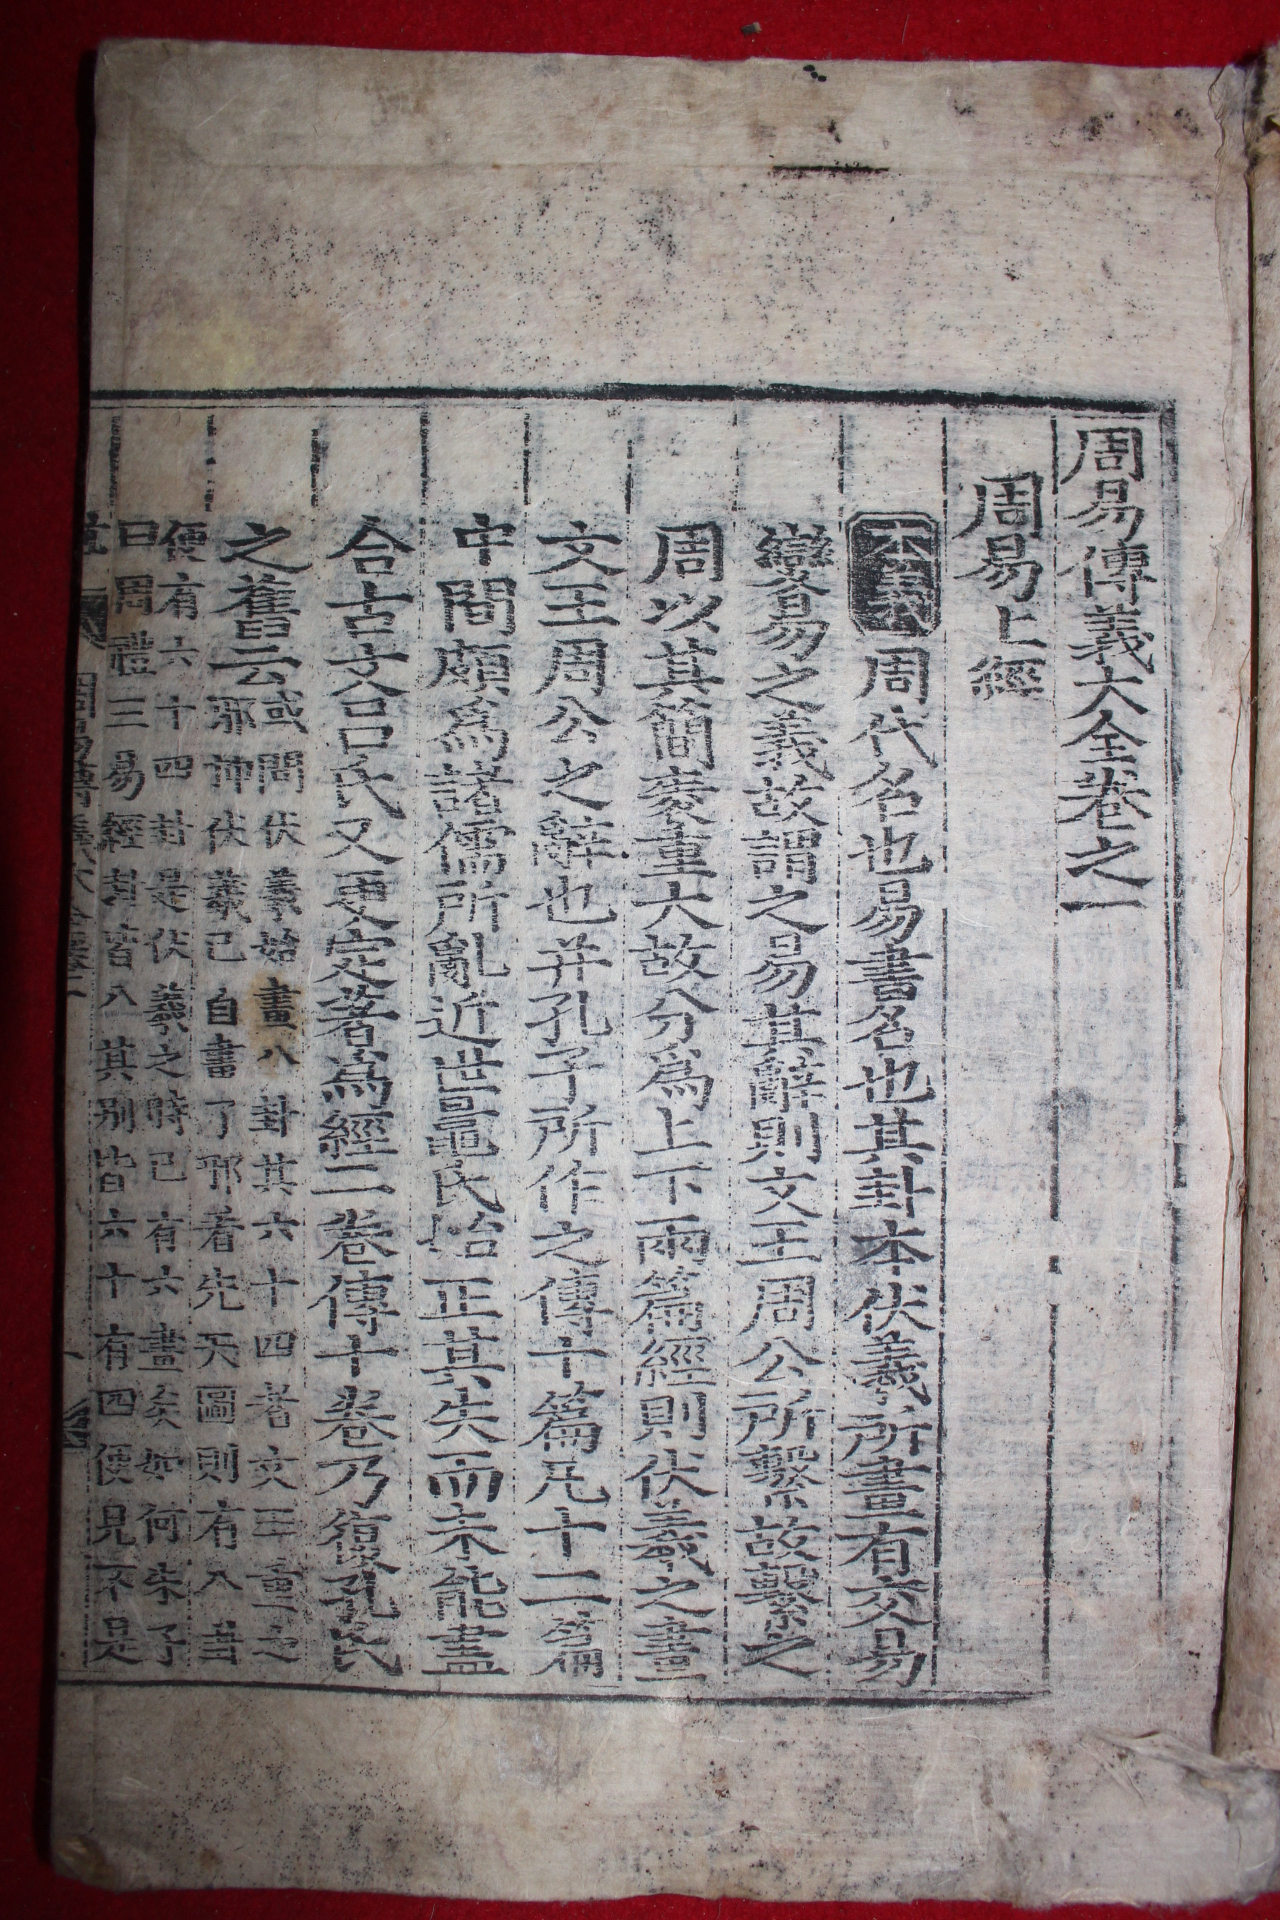 周易傳義大全卷之一
周易上經
本義周代名也易書名也其卦本伏羲所畫有交易
變易之義故謂之易其辭則文王周公所繫故繫之
周以其簡袠重大故分爲上下兩篇經則伏羲之畫
文王周公之辭也并孔子所作之傳十篇凡十二篇
中間頗爲諸儒所亂近世晁氏始正其失而未能盡
合古文呂氏又更定著爲經二卷傳十卷乃復孔氏
之舊云
或問伏羲始畫八卦其六十四者文王重之
邪抑伏羲已自畫了邪看先天圖則有八卦
便有六十四卦是伏羲之時已有六畫矣如何朱子
曰周禮三易經卦皆八其別皆六十有四便見不是